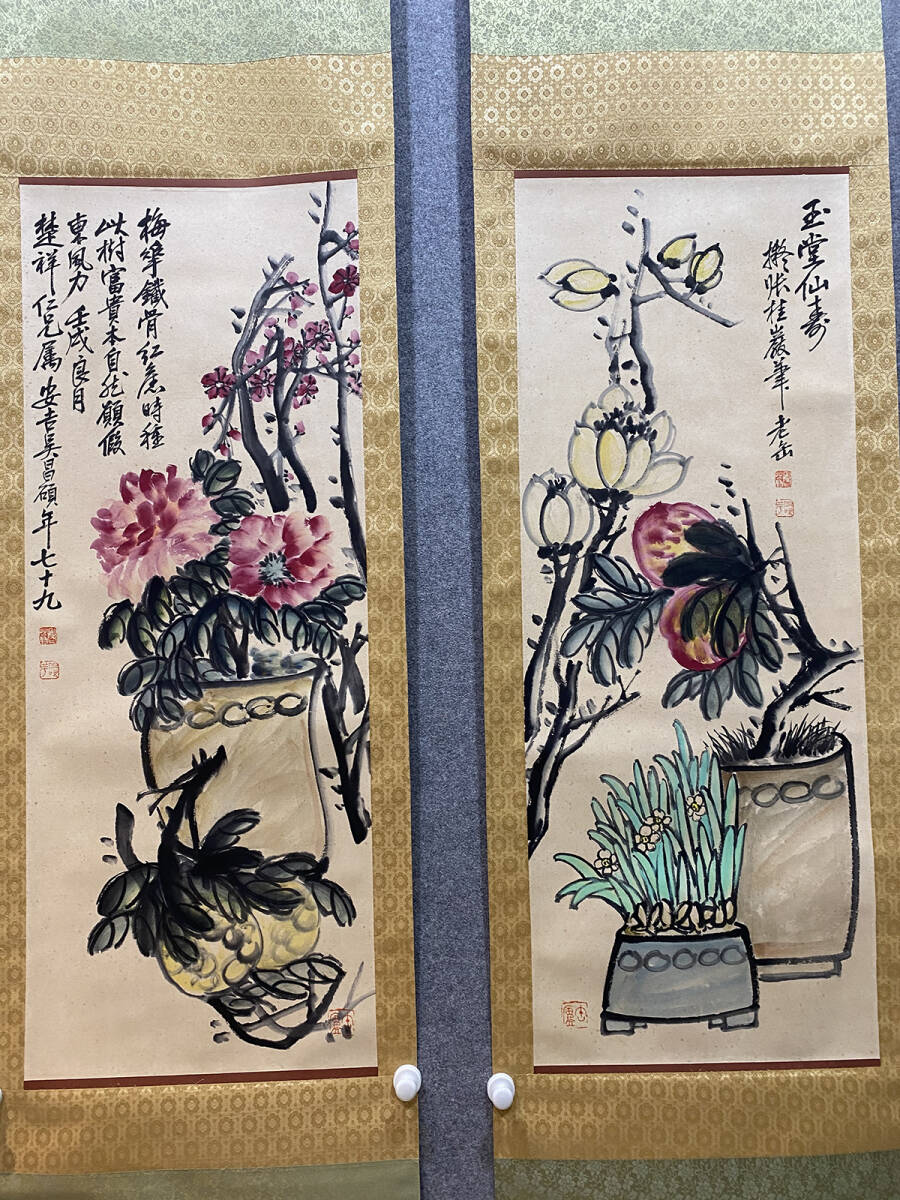 梅華鐵骨紅麄時種
此樹富貴本自然願假
東風力 壬戌良月
楚祥仁兄属 安吉吳昌碩年七十九
玉堂仙壽
擬張桂巖筆 老缶